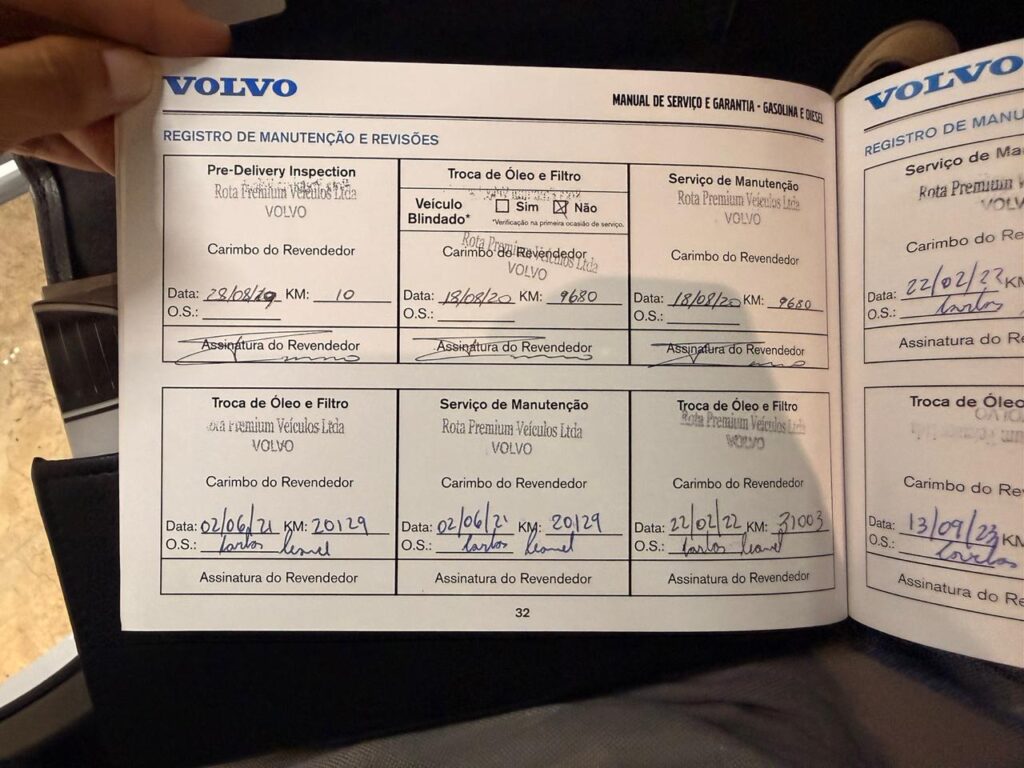 VOLVO
MANUAL DE SERVIÇO E GARANTIA - GASOLINA E DIESEL
REGISTRO DE MANUTENÇÃO E REVISÕES
Pre-Delivery Inspection
Rota Premium Veículos Ltda
VOLVO
Carimbo do Revendedor
Data: 28/08/19 KM: 10
O.S.:
Assinatura do Revendedor
Troca de Óleo e Filtro
Veículo Blindado* Sim Não
*Verificação na primeira ocasião de serviço.
Rota Premium Veículos Ltda
VOLVO
Carimbo do Revendedor
Data: 18/08/20 KM: 9680
O.S.:
Assinatura do Revendedor
Serviço de Manutenção
Rota Premium Veículos Ltda
VOLVO
Carimbo do Revendedor
Data: 18/08/20 KM: 9680
O.S.:
Assinatura do Revendedor
Troca de Óleo e Filtro
Rota Premium Veículos Ltda
VOLVO
Carimbo do Revendedor
Data: 02/06/21 KM: 20129
O.S.: Carlos Leonel
Assinatura do Revendedor
Serviço de Manutenção
Rota Premium Veículos Ltda
VOLVO
Carimbo do Revendedor
Data: 02/06/21 KM: 20129
O.S.: Carlos Leonel
Assinatura do Revendedor
Troca de Óleo e Filtro
Rota Premium Veículos Ltda
VOLVO
Carimbo do Revendedor
Data: 22/02/22 KM: 31003
O.S.: Carlos Leonel
Assinatura do Revendedor
32
VOLVO
REGISTRO DE MANU
Serviço de Ma
Rota Premium V
VOLV
Carimbo do Re
22/02/23 KM
Carlos
Assinatura do Re
Troca de Óleo
Carimbo do Re
Data: 13/09/23 KM
O.S.: Carlos
Assinatura do Re